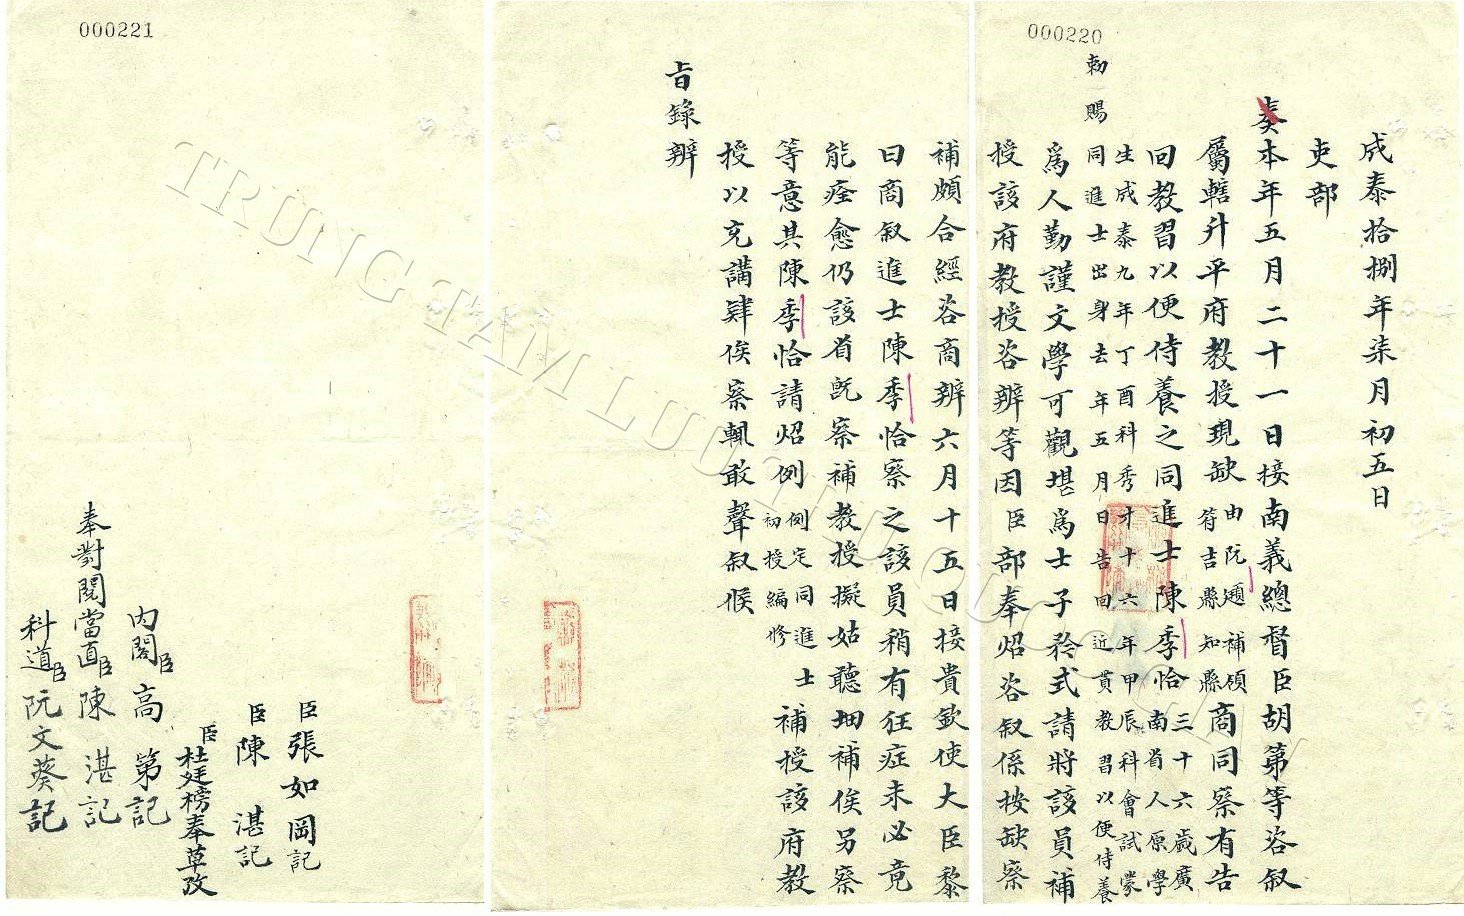 000220
成泰拾捌年柒月初五日
吏部
奏本年五月二十一日接南義總督臣胡第等咨叙
屬轄升平府教授現缺由阮 補領符吉縣知縣商同察有告
回教習以便侍養之同進士陳季恰三十六歲廣南省人原學
生成泰九年丁酉科秀才十六年甲辰科會試蒙
敕賜同進士出身去年五月日告回近貫教習以便侍養
爲人勤謹文學可觀堪爲士子矜式請將該員補
授該府教授咨辨等因臣部奉炤咨叙係按缺察
補頗合經咨商辨六月十五日接貴欽使大臣黎
曰商叙進士陳季恰察之該員稍有狂症未必竟
能痊愈仍該省旣察補教授擬姑聽畑補俟另察
等意其陳季恰請炤例例定同進士初授編修補授該府教
授以充講肄俟察輒敢聲叙候
旨錄辨
000221
臣張如岡記
臣陳湛記
臣杜廷榜奉草攷
內閣臣高第記
奉對閱當直臣陳湛記
科道臣阮文葵記
TRUNG TAM LUU TRU QUOC GIA